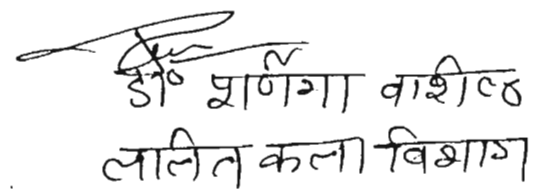 डॉ० पूर्णिमा वाशीष्ठ
ललित कला विभाग